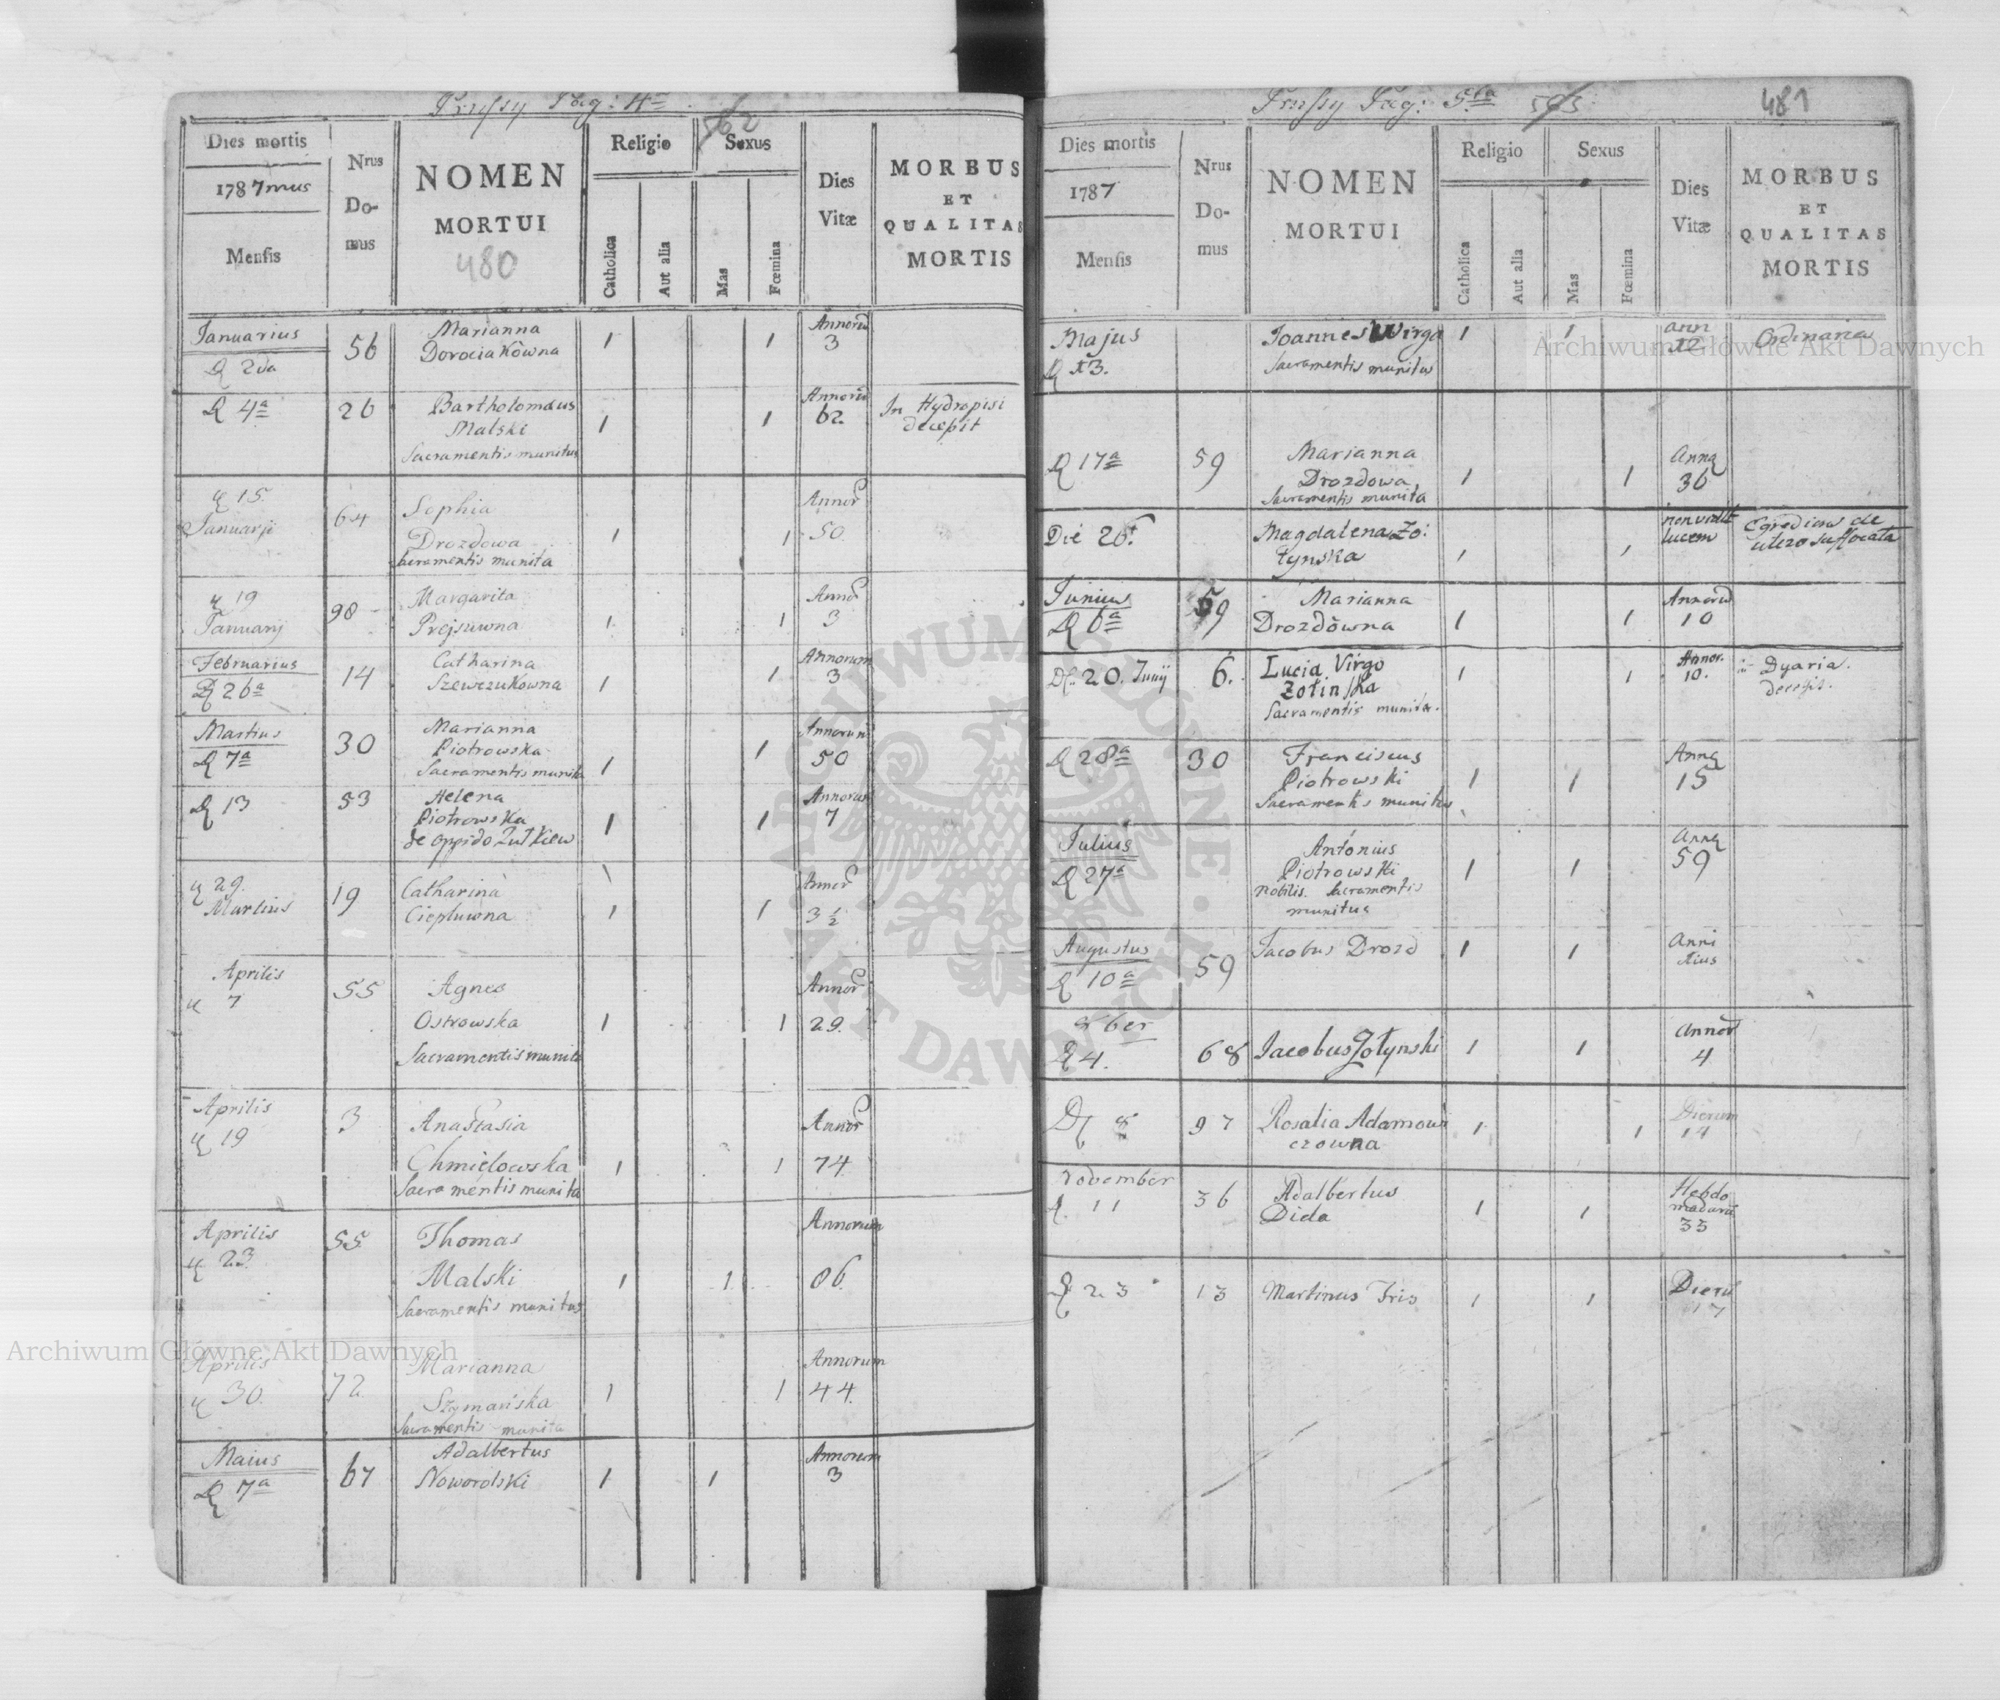 Prussy Pag: 4ta
562
Dies mortis
1787mus
Mensis
Nrus
Do-
mus
NOMEN
MORTUI
480
Religio
Catholica
Aut alia
Sexus
Mas
Fœmina
Dies
Vitæ
MORBUS
ET
QUALITAS
MORTIS
Januarius
D 2da
56
Marianna
Dorociakówna
1
1
Annorũ
3
D 4ª
26
Bartholomæus
Malski
Sacramentis munitus
1
1
Annorũ
62.
In Hydropisi
decessit
15
Januarji
64
Sophia
Drozdowa
Sacramentis munita
1
1
Annor
50
19
Januarij
98
Margarita
Prejsuwna
1
1
Annor
3
Februarius
D 26ª
14
Catharina
Szewczukowna
1
1
Annorum
3
Martius
D 7ª
30
Marianna
Piotrowska
Sacramentis munita
1
1
Annorum
50
D 13
53
Helena
Piotrowska
de oppido Żułkiew
1
1
Annorum
7
29.
Martius
19
Catharina
Ciepluwna
1
1
Annor
3½
Aprilis
7
55
Agnes
Ostrowska
Sacramentis munita
1
1
Annor
29.
Aprilis
19
3
Anastasia
Chmielowska
Sacramentis munita
1
1
Annor
74
Aprilis
23
55
Thomas
Malski
Sacramentis munitus
1
1
Annorum
86
Aprilis
30.
72
Marianna
Szymańska
Sacramentis munita
1
1
Annorum
44.
Maius
D 7ª
67
Adalbertus
Noworolski
1
1
Annorum
3
Prussy Pag: 5ta
481
Dies mortis
1787
Mensis
Nrus
Do-
mus
NOMEN
MORTUI
Religio
Catholica
Aut alia
Sexus
Mas
Fœmina
Dies
Vitæ
MORBUS
ET
QUALITAS
MORTIS
Majus
D 13.
Joannes Wirga
Sacramentis munitus
1
1
ann
12
Ordinaria
D 17ª
59
Marianna
Drozdowa
Sacramentis munita
1
1
Anno
36
Die 26.
Magdalena Zo:
łynska
1
1
non vidit
lucem
Egrediens de
utero suffocata
Junius
D 6ª
59
Marianna
Drozdówna
1
1
Annorũ
10
D. 20. Junij
6.
Lucia Virgo
Zołinska
Sacramentis munita.
1
1
Annor.
10.
in Dyaria.
decessit.
D 28ª
30
Franciscus
Piotrowski
Sacramentis munitus
1
1
Anno
15
Julius
D 27ª
Antonius
Piotrowski
Nobilis. Sacramentis
munitus
1
1
Anno
59
Augustus
D 10ª
59
Jacobus Drozd
1
1
Anni
8ber
D 4.
68
Jacobus Zołynski
1
1
Annor
4
D 8
97
Rosalia Adamowi
czowna
1
1
Dierum
14
November
D. 11
36
Adalbertus
Dida
1
1
Hebdo
madarũ
33
D. 23
13
Martinus Fris
1
1
Dierũ
17
Archiwum Główne Akt Dawnych
Archiwum Główne Akt Dawnych
ARCHIWUM GŁÓWNE AKT DAWNYCH